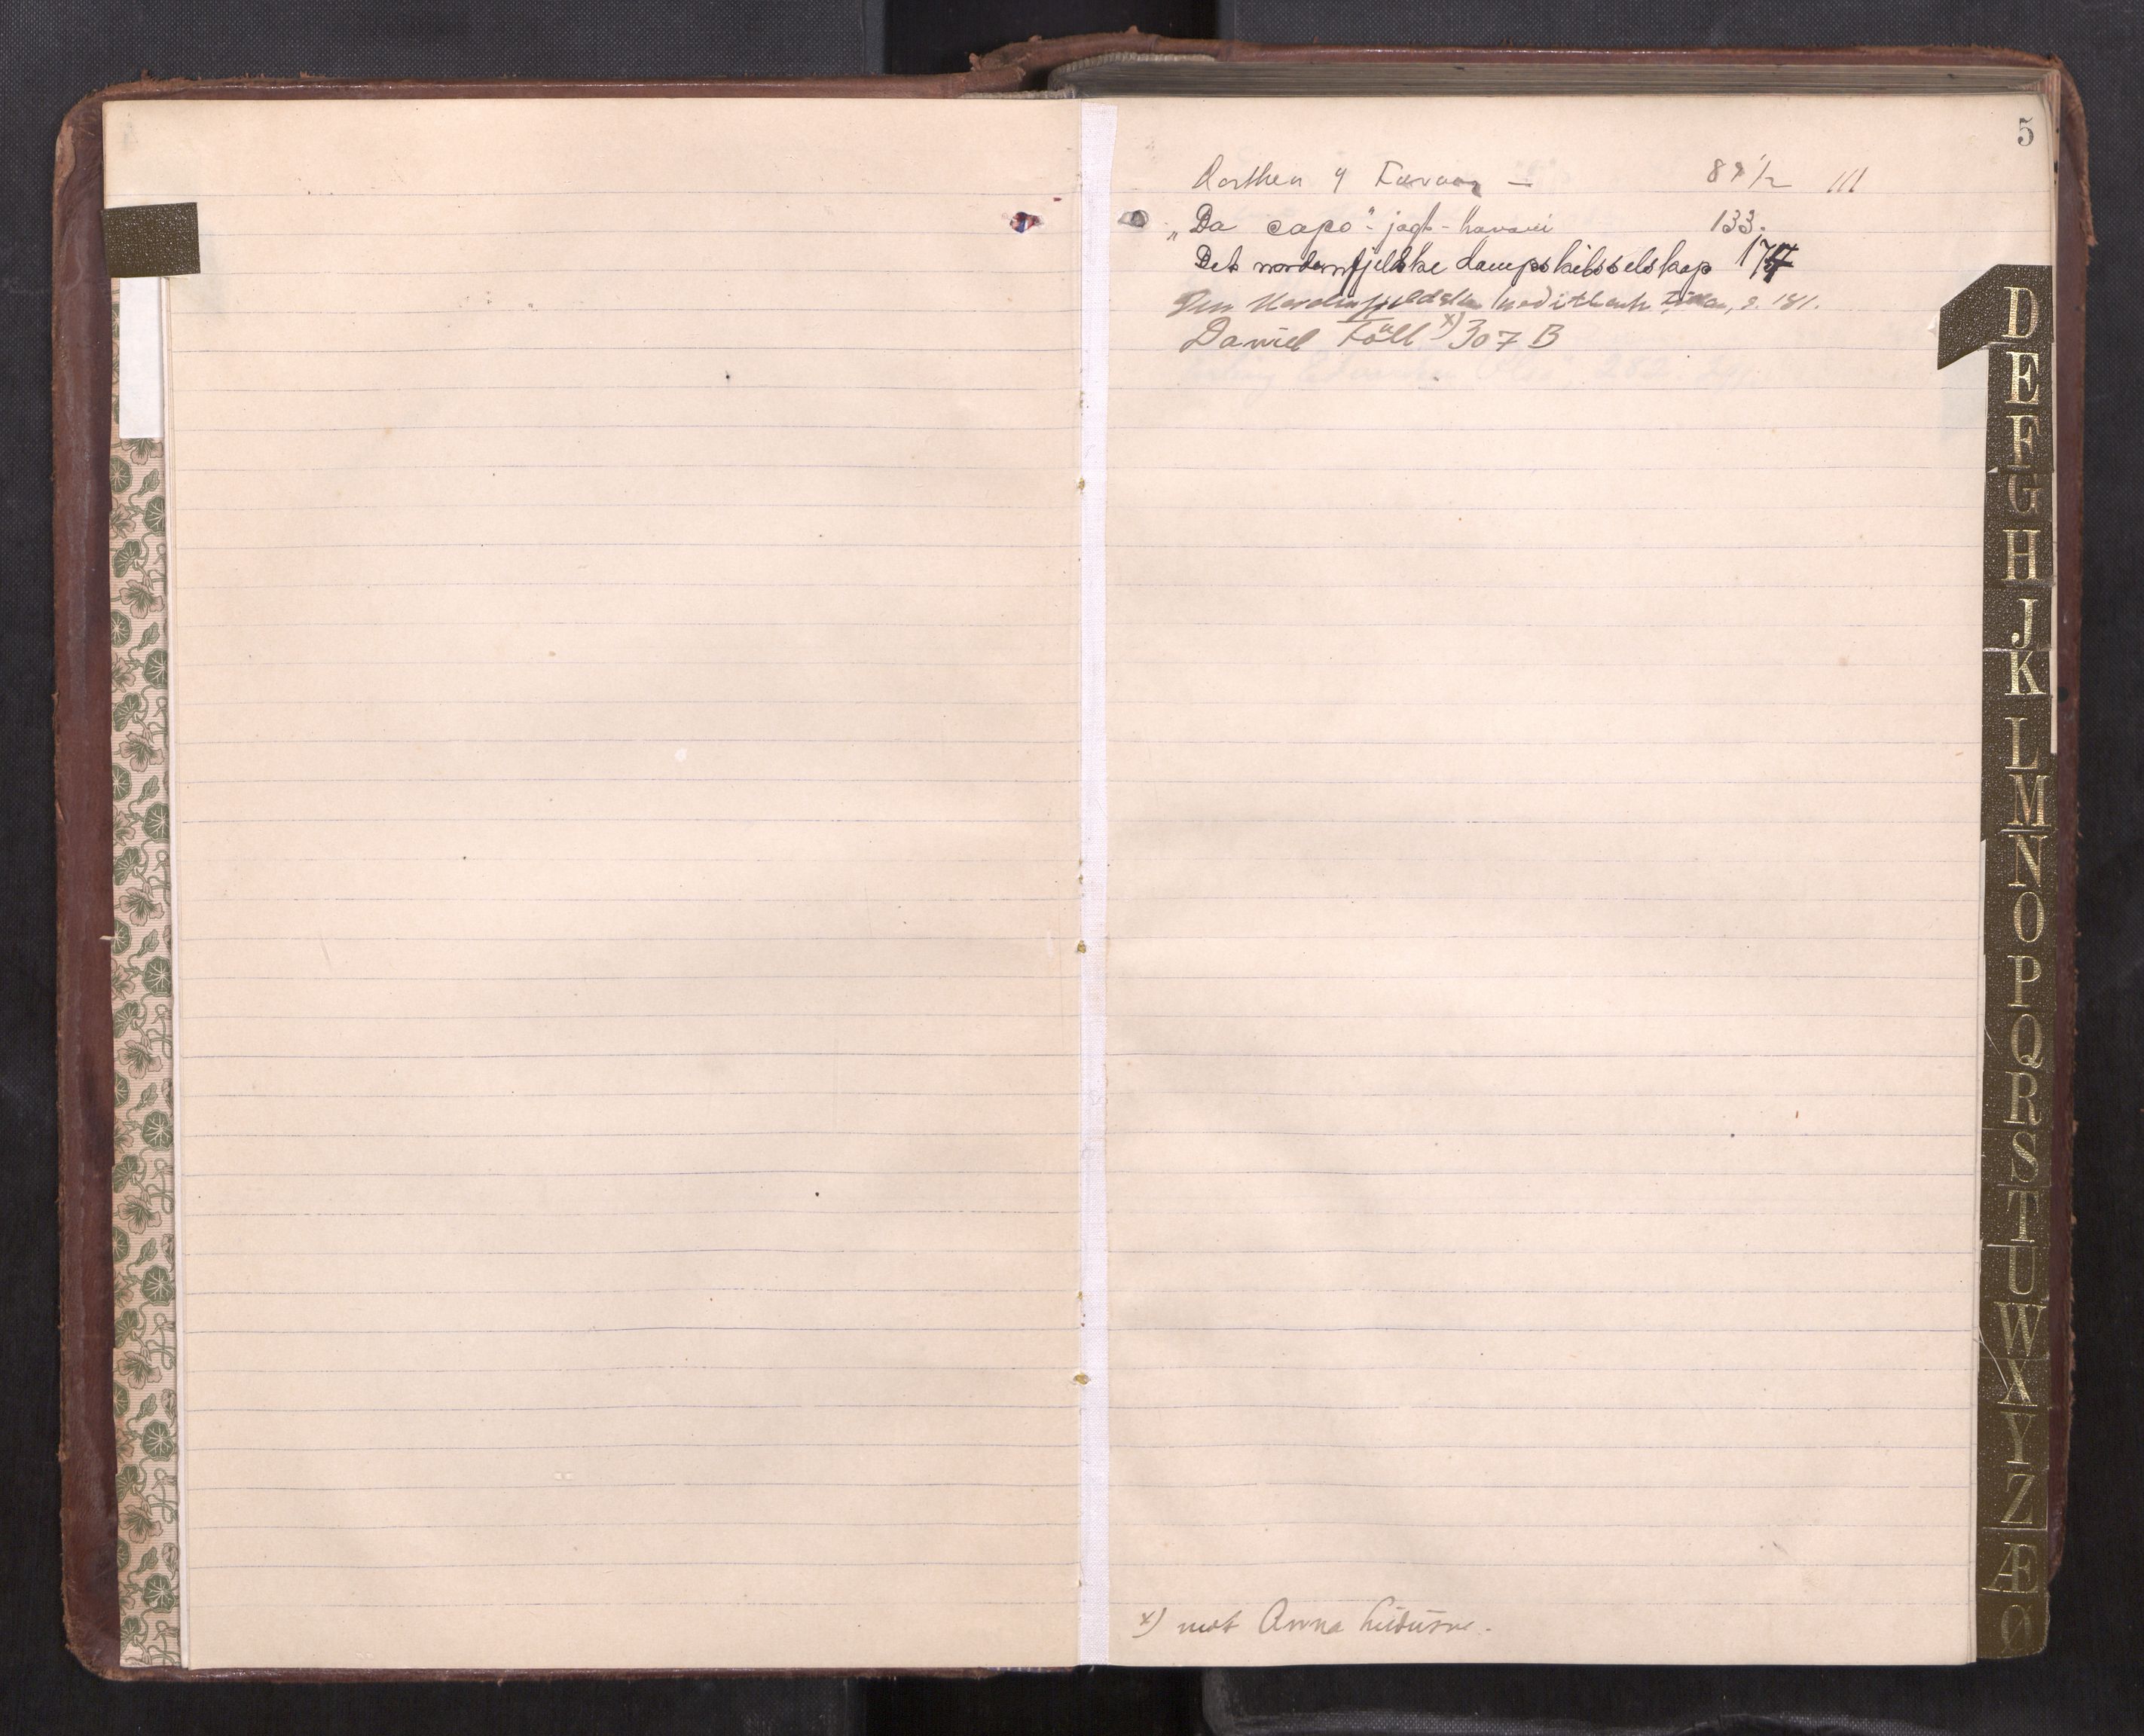 5
Dorthea 9 Farvaag — 87 1/2 111
"Da capo" - jagt - havari 133.
Det nordenfjeldske dampskibsselskap 174
Den Nordenfjeldske kreditbank s. 181.
Daniel Föll x) 307 B
D
E
F
G
H
J
K
L
M
N
O
P
Q
R
S
T
U
W
X
Y
Z
Æ
Ø
x) mot Anna